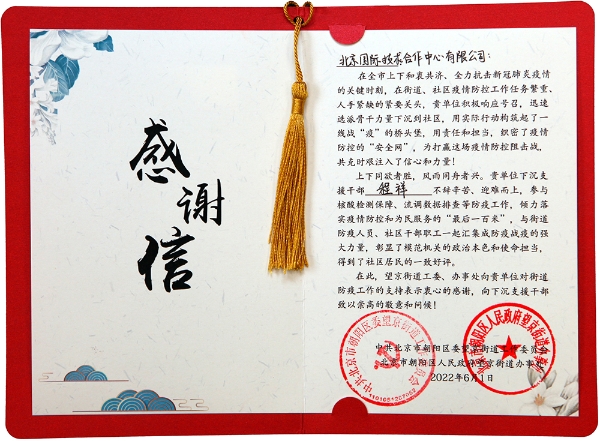 感谢信
北京国际技术合作中心有限公司：
在全市上下和衷共济、全力抗击新冠肺炎疫情
的关键时刻，在街道、社区疫情防控工作任务繁重、
人手紧缺的紧要关头，贵单位积极响应号召，迅速
选派骨干力量下沉到社区，用实际行动构筑起了一
线战“疫”的桥头堡，用责任和担当，织密了疫情
防控的“安全网”，为打赢这场疫情防控阻击战，
共克时艰注入了信心和力量！
上下同欲者胜，风雨同舟者兴。贵单位下沉支
援干部 程祥 不辞辛苦、迎难而上，参与
核酸检测保障、流调数据排查等防疫工作，倾力落
实疫情防控和为民服务的“最后一百米”，与街道
防疫人员、社区干部职工一起汇集成防疫战疫的强
大力量，彰显了模范机关的政治本色和使命担当，
得到了社区居民的一致好评。
在此，望京街道工委、办事处向贵单位对街道
防疫工作的支持表示衷心的感谢，向下沉支援干部
致以崇高的敬意和问候！
中共北京市朝阳区委望京街道工作委员会
北京市朝阳区人民政府望京街道办事处
2022年6月1日
中共北京市朝阳区委望京街道工作委员会
北京市朝阳区人民政府望京街道办事处